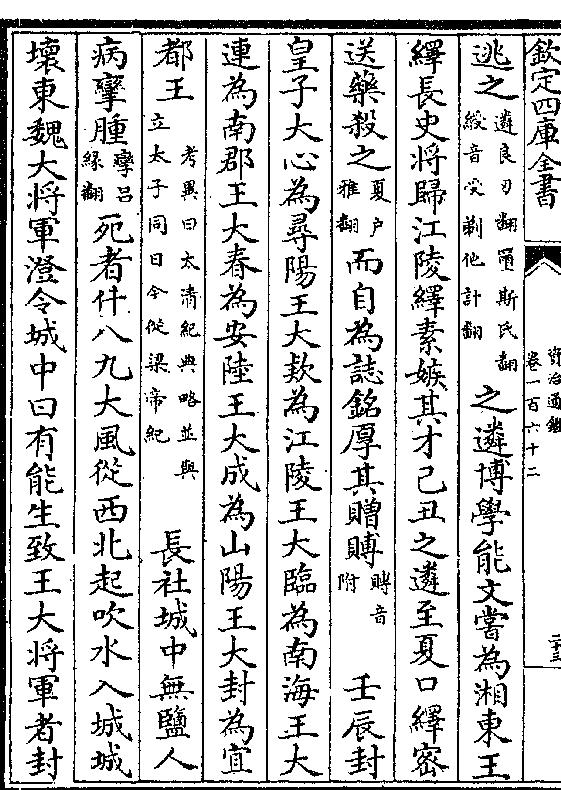 欽定四庫全書
資治通鑑
卷一百六十二
逃之遴良刃翻璽斯氏翻綬音受剃他計翻之遴博學能文嘗為湘東王
繹長史將歸江陵繹素嫉其才己丑之遴至夏口繹密
送藥殺之夏户雅翻而自為誌銘厚其贈賻賻音附壬辰封
皇子大心為尋陽王大欵為江陵王大臨為南海王大
連為南郡王大春為安陸王大成為山陽王大封為宜
都王考異曰太清紀典略並與立太子同日今從梁帝紀長社城中無鹽人
病攣腫攣吕緣翻死者什八九大風從西北起吹水入城城
壞東魏大將軍澄令城中曰有能生致王大將軍者封